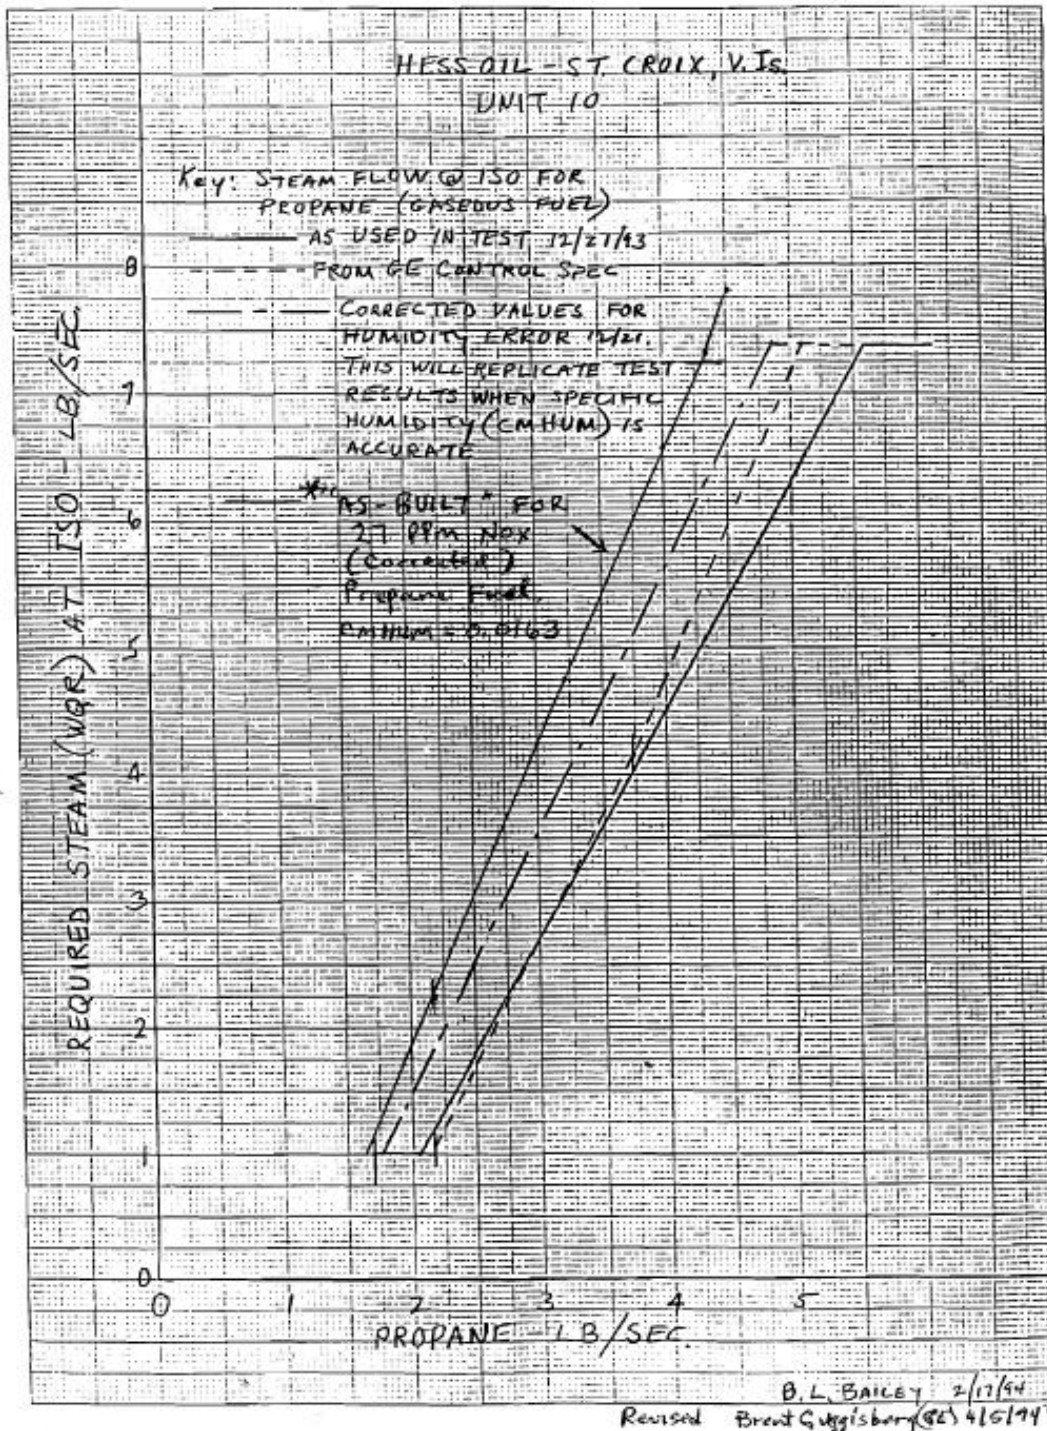 HESS OIL - ST. CROIX, V. Is.
UNIT 10
Key: STEAM FLOW @ ISO FOR
PROPANE (GASEOUS FUEL)
AS USED IN TEST 12/27/93
FROM GE CONTROL SPEC
CORRECTED VALUES FOR
HUMIDITY ERROR 12/21.
THIS WILL REPLICATE TEST
RESULTS WHEN SPECIFIC
HUMIDITY (CMHUM) IS
ACCURATE
*"AS-BUILT" FOR
27 PPM NOx
(Corrected)
Propane Fuel.
CMHUM = 0.0163
REQUIRED STEAM (WQR) AT ISO - LB/SEC.
8
7
6
5
4
3
2
1
0
0 1 2 3 4 5
PROPANE - LB/SEC.
B. L. BAILEY 2/17/94
Revised Brent Guggisberg 4/5/94